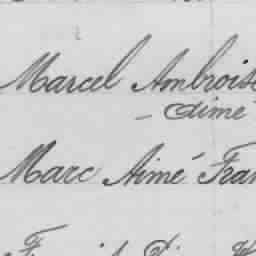 Marcel Ambroise
- Aimé
Marc Aimé Fran